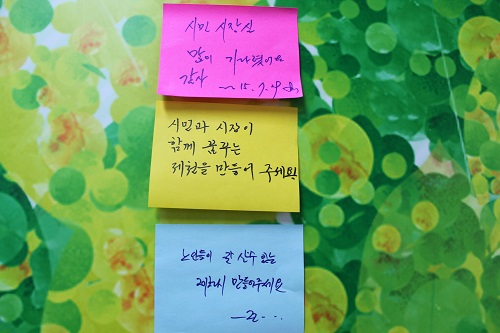 시민 시장실
많이 기다렸어요
감사 ~ 15. 7. 9
시민과 시장이
함께 꿈꾸는
제천을 만들어 주세요!
노인들이 잘 살 수 있는
제천시 만들어주세요